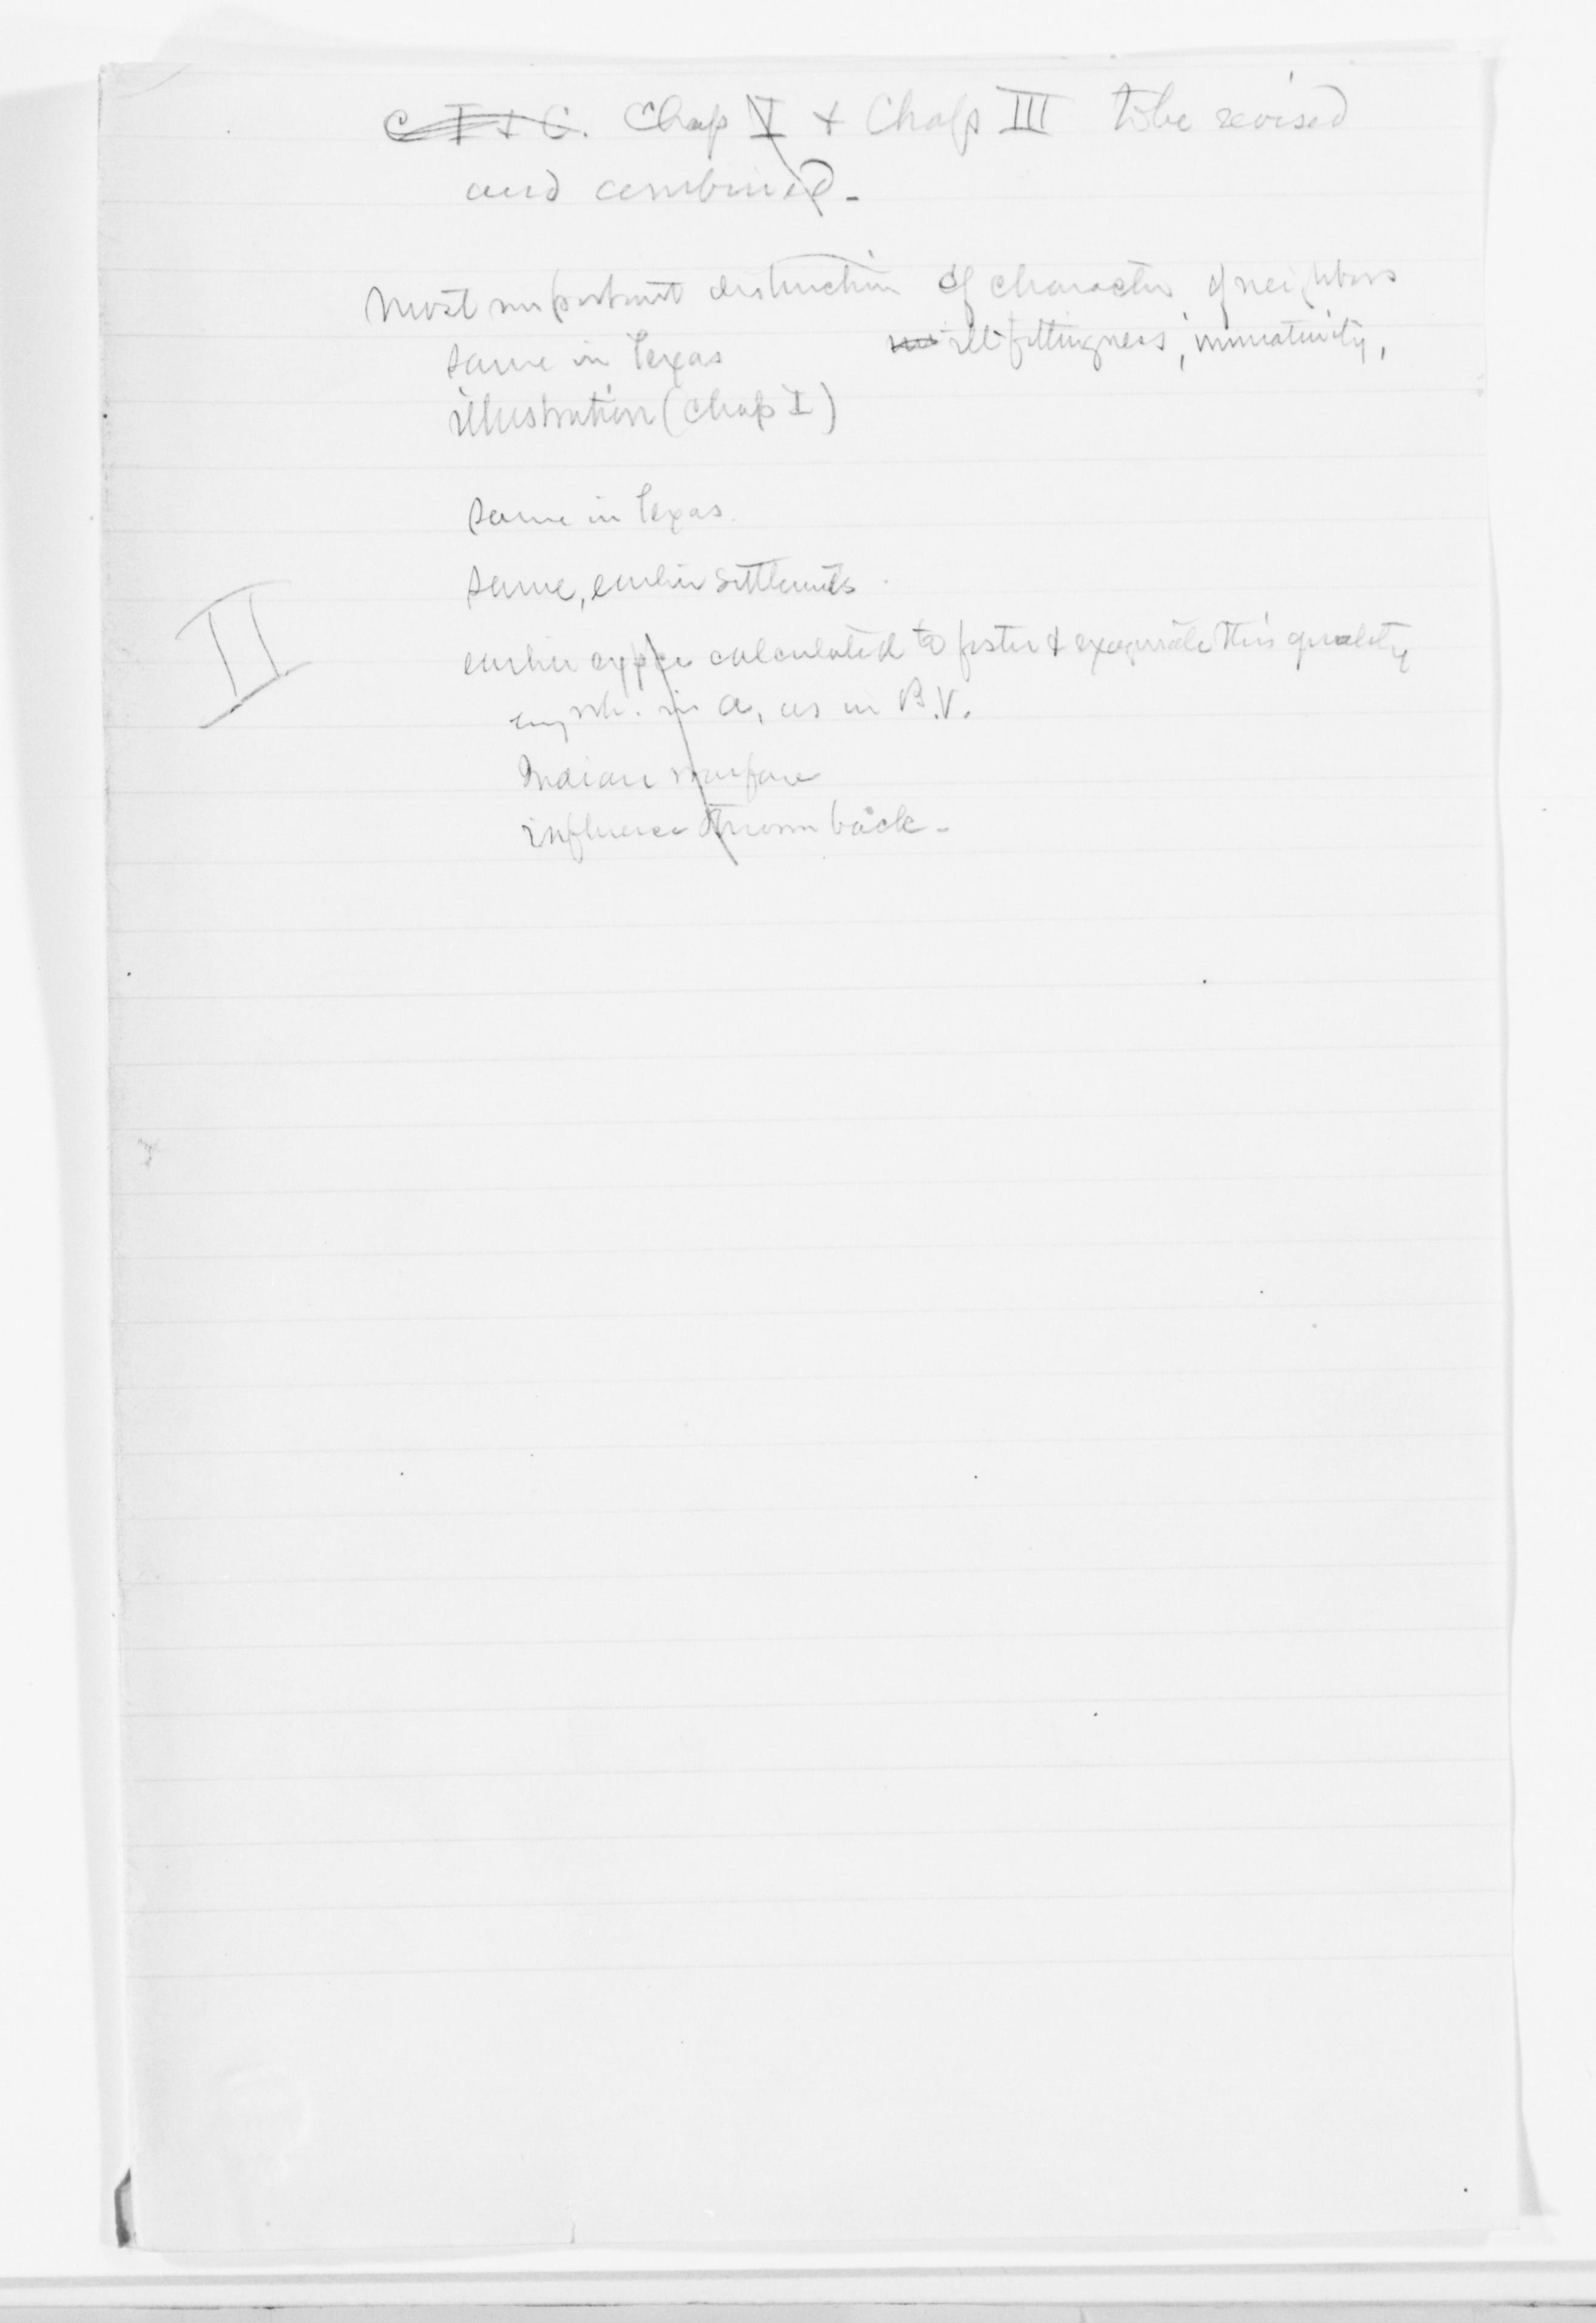 C I & C. Chap V & Chap III to be revised
and combined -
Most important distinction of character of neighbors
illfittingness, immaturity,
same in Texas
illustration (Chap I)
same in Texas.
same, earlier settlements.
II
earlier calculated to foster & this quality
in a, as in B.V.
Indian warfare
influence thrown back -